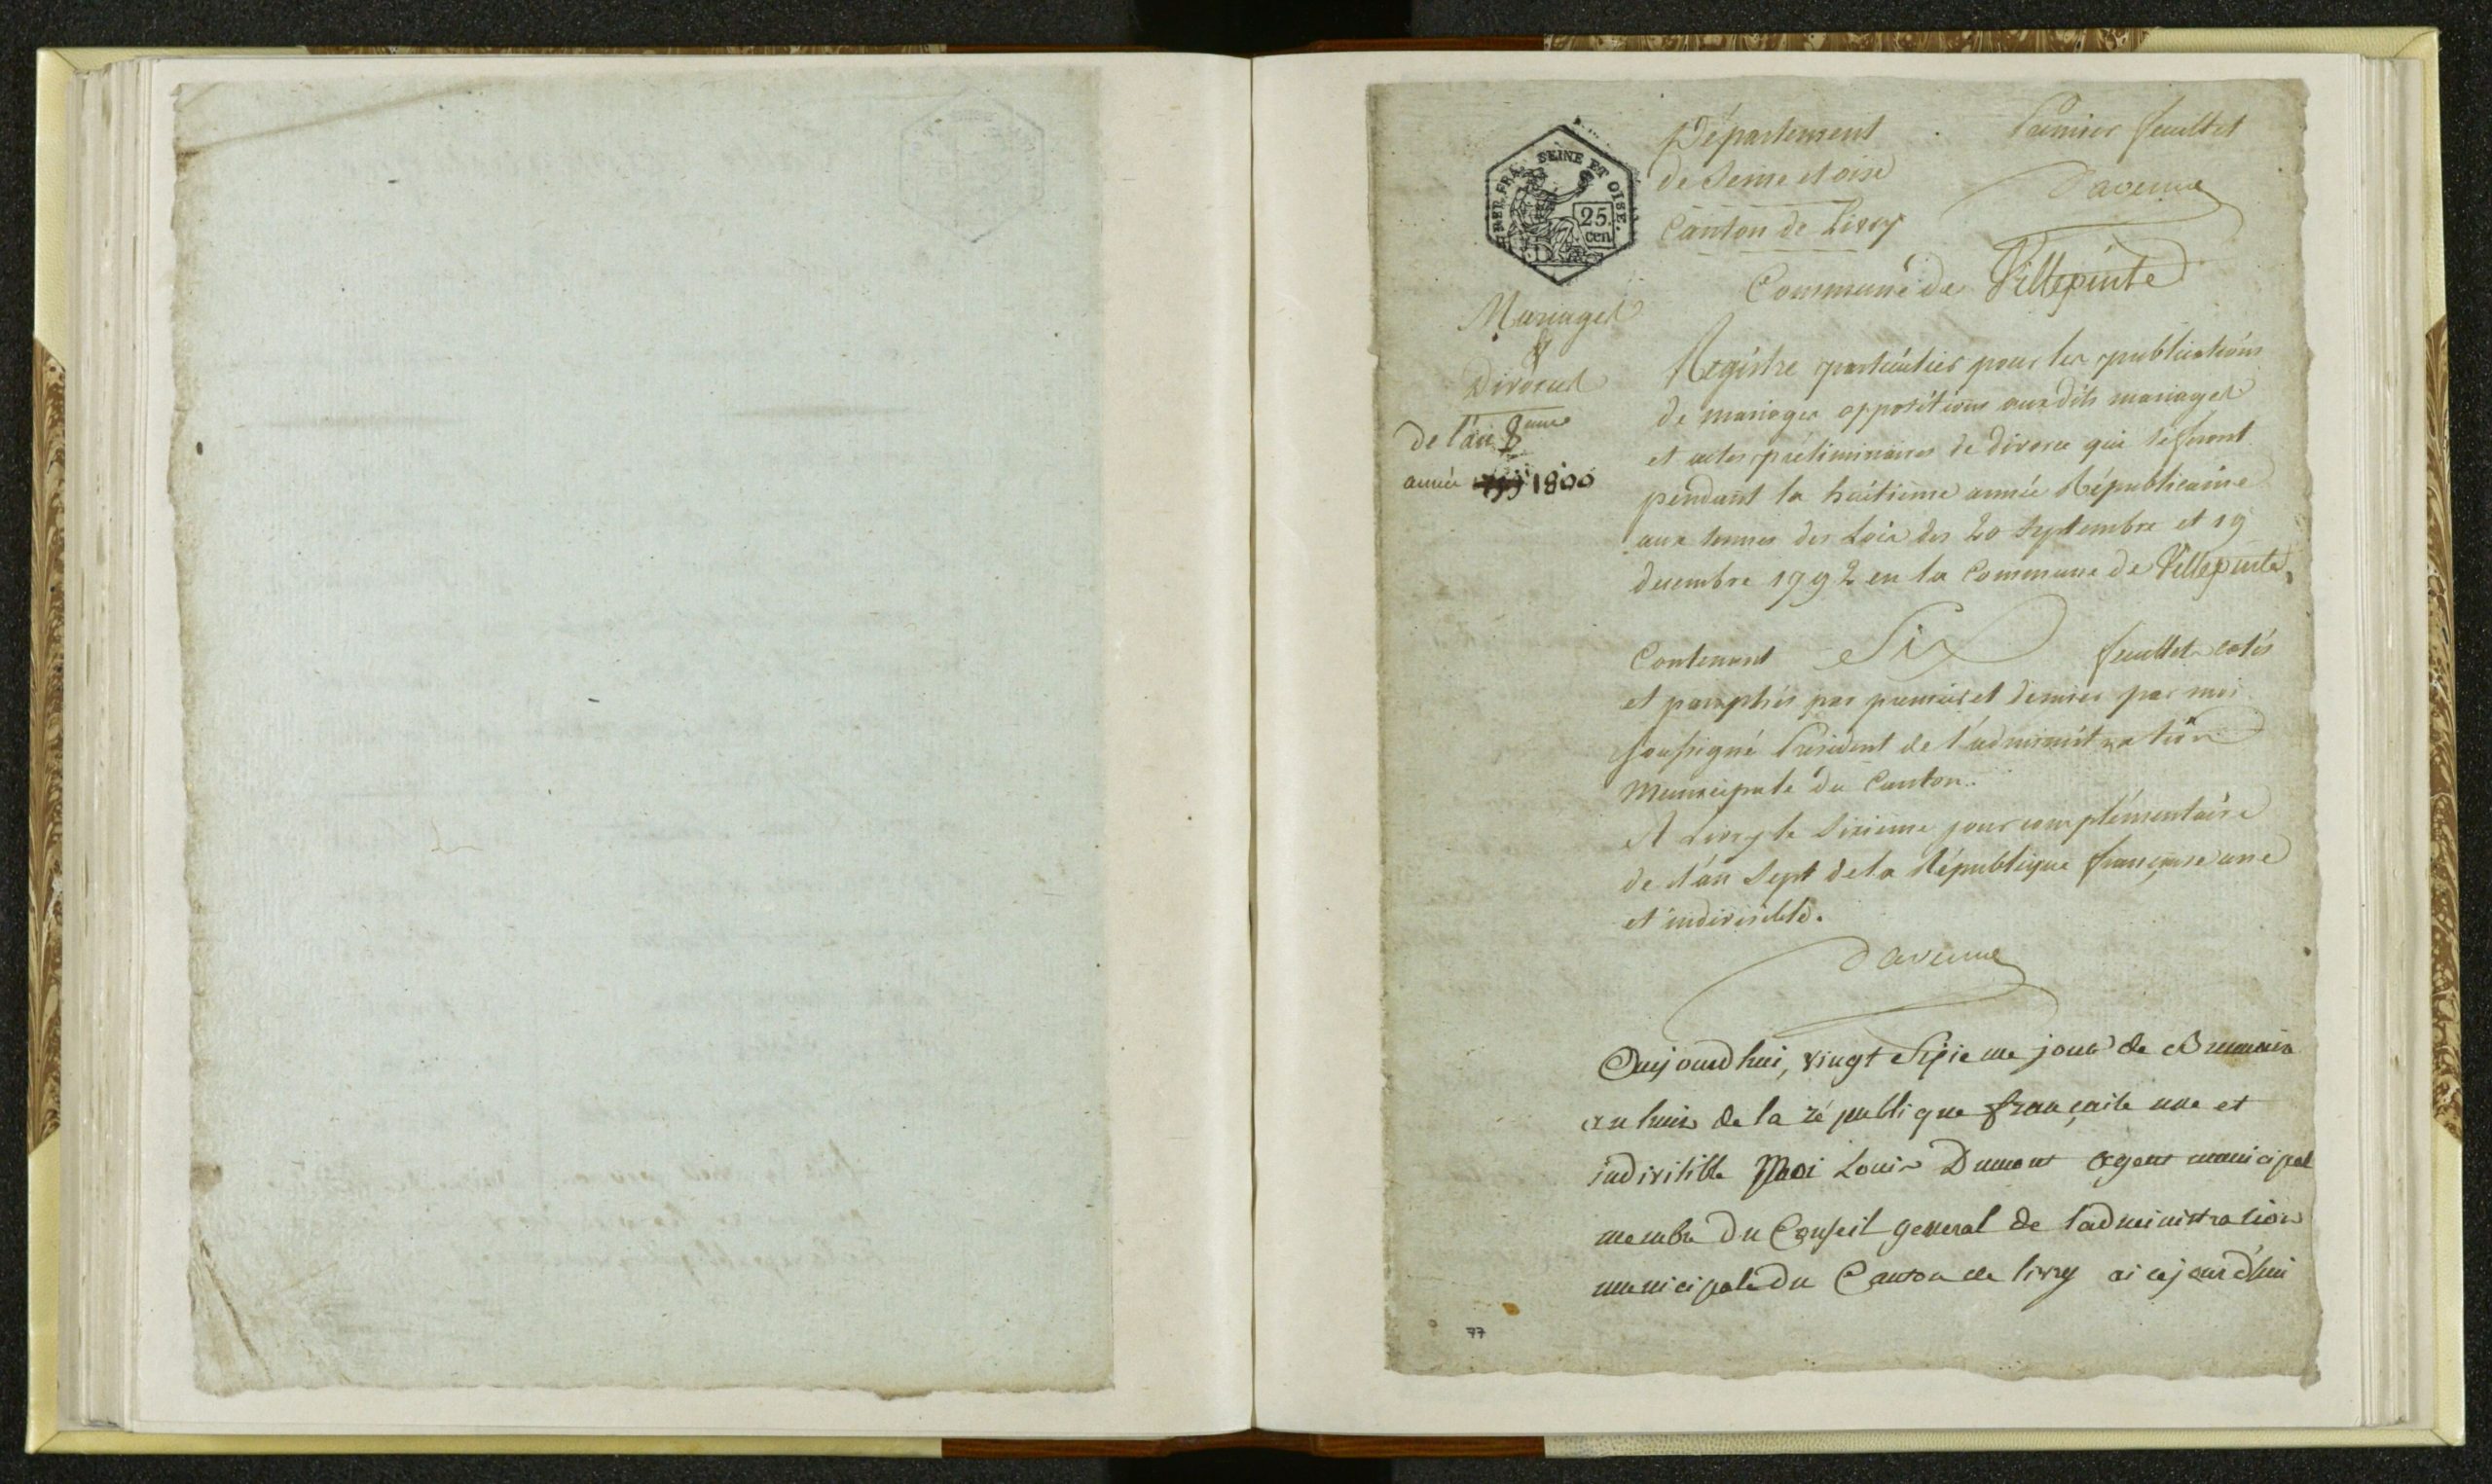 SEINE ET OISE.
25.
cen
Département
de Seine et oise
Canton de Livry
Premier feuillet
Davenne
Commune de Villepinte
Mariages
et
Divorces
de l'an 8eme
année 1800
Registre particulier pour les publications
de mariages oppositions aux dits mariages
et actes préliminaires de divorce qui se feront
pendant la huitieme année Républicaine
aux termes des Loix des 20 Septembre et 19
decembre 1792 en la Commune de Villepinte,
Contenant Six feuillets cotés
et paraphés par premier et dernier par moi
soussigné Président de l'administration
Municipale du Canton.
A Livry le Sixieme jour complémentaire
de l'an Sept de la République française une
et indivisible.
Davenne
Aujourdhui, vingt Sixieme jour de Brumaire
an huit de la république française une et
indivisible Moi Louis Dumont agent municipal
membre du Conseil general de l'administration
municipale du Canton de livry ai cejourd'hui
77